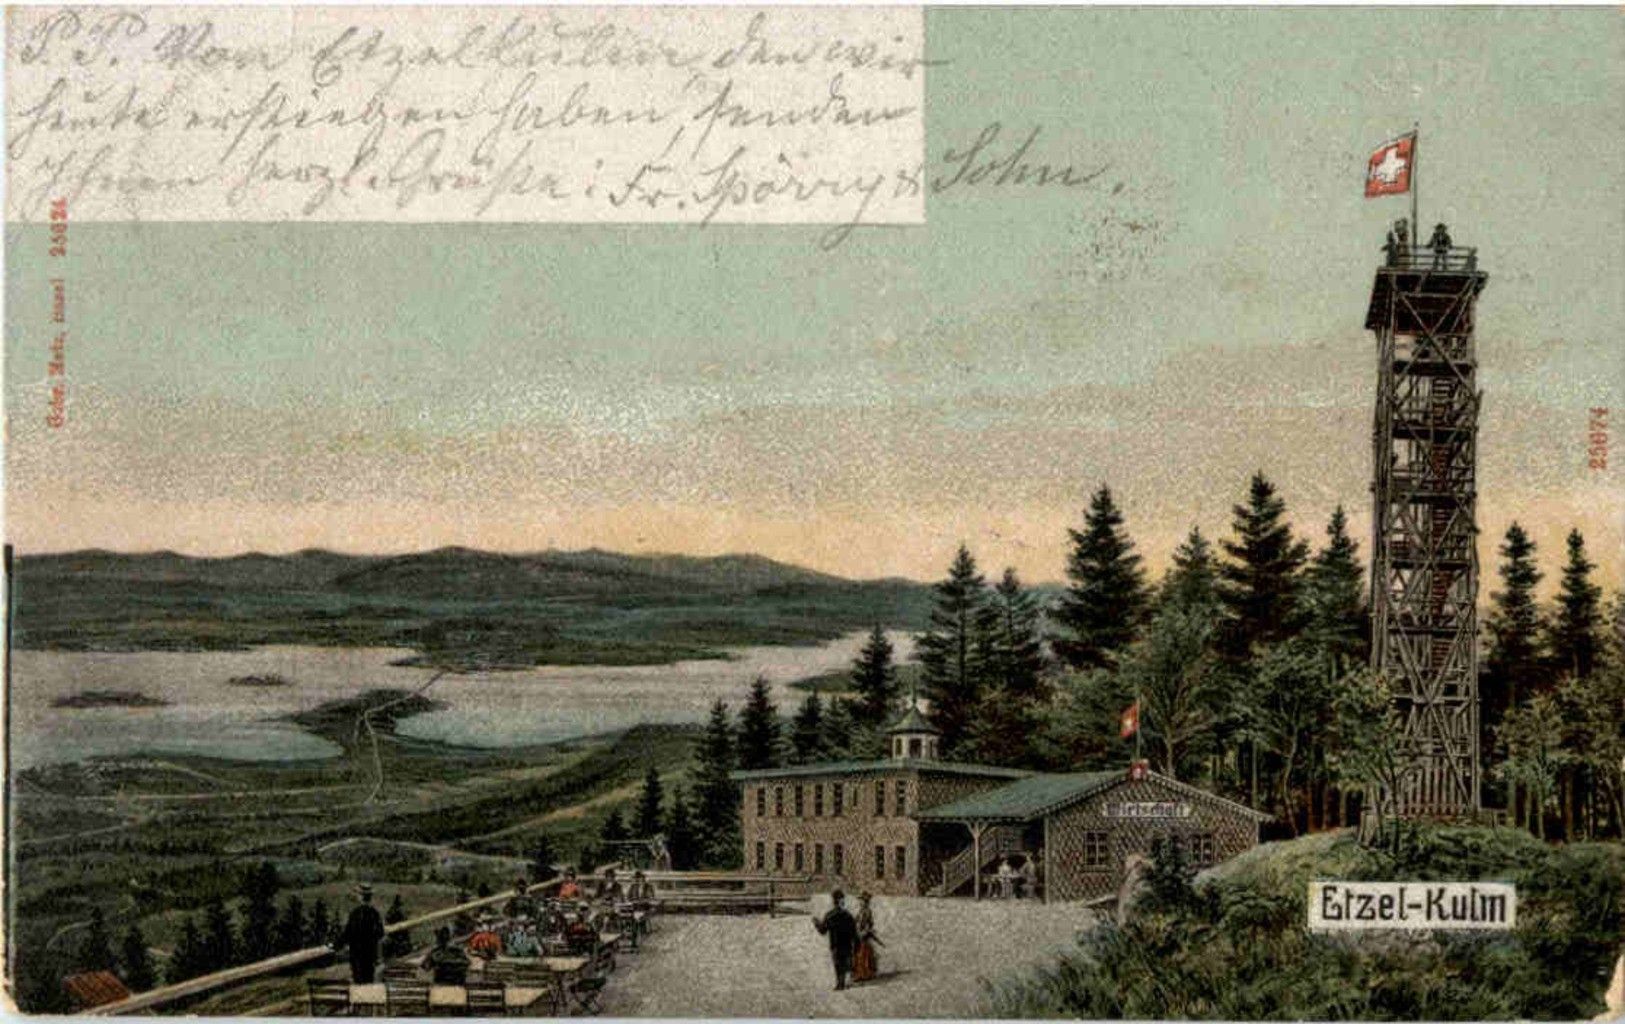 P. P. Von Etzelkulm, den wir
heute erstiegen haben, senden
Ihnen herzl. Grüsse: Fr. Spörry & Sohn.
Gebr. Metz, Basel 25624
25674
Wirtschaft
Etzel-Kulm